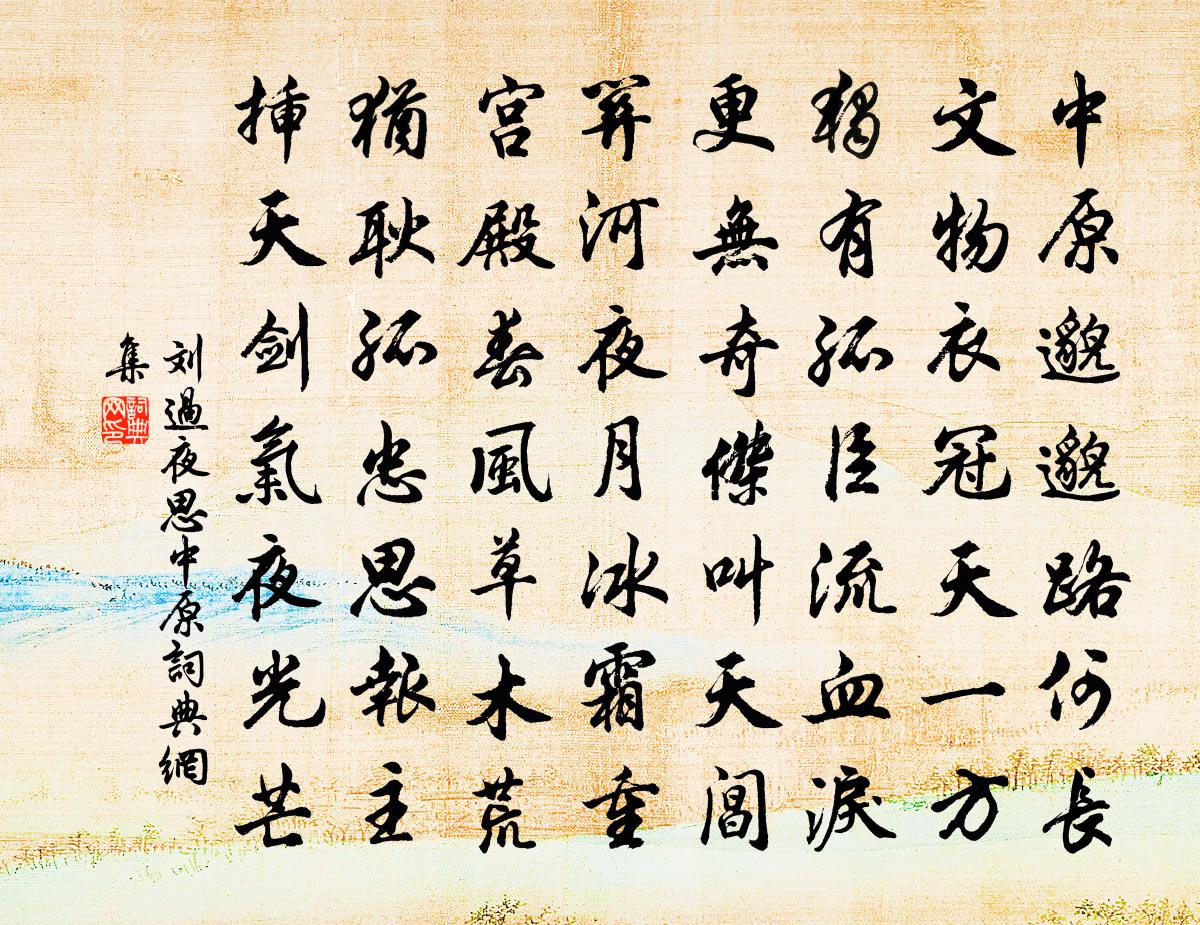 中原邈邈路何長
文物衣冠天一方
獨有孤臣流血淚
更無奇傑叫天閶
關河夜月冰霜重
宮殿春風草木荒
猶耿孤忠思報主
插天劍氣夜光芒
刘過夜思中原詞典網
集
詞典网印